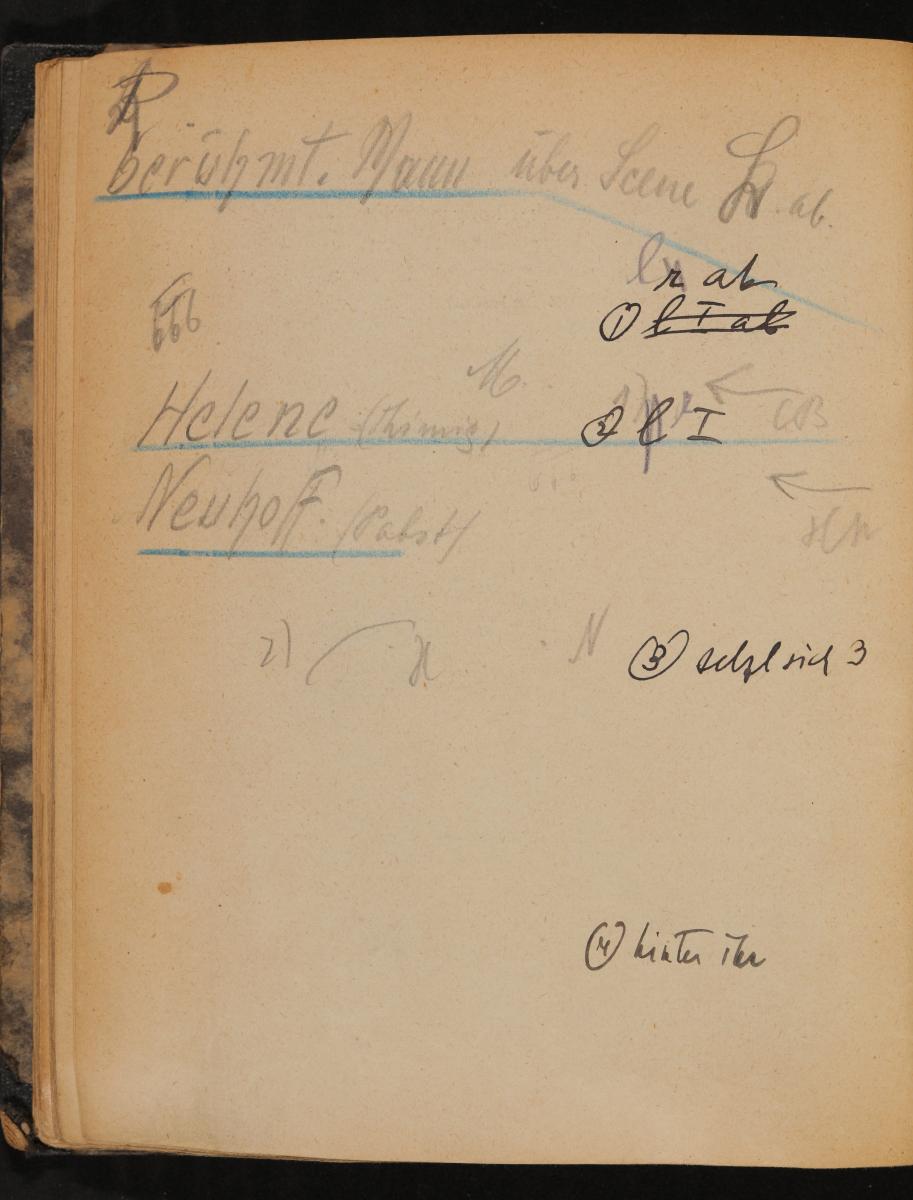 berühmt. Mann über Scene L. ab.
r ab
① l I ab
666
M.
Helene (Thimig)
② l I
Neuhoff. (Pabst)
2) H N
③ setzt sich 3
④ hinter ihr